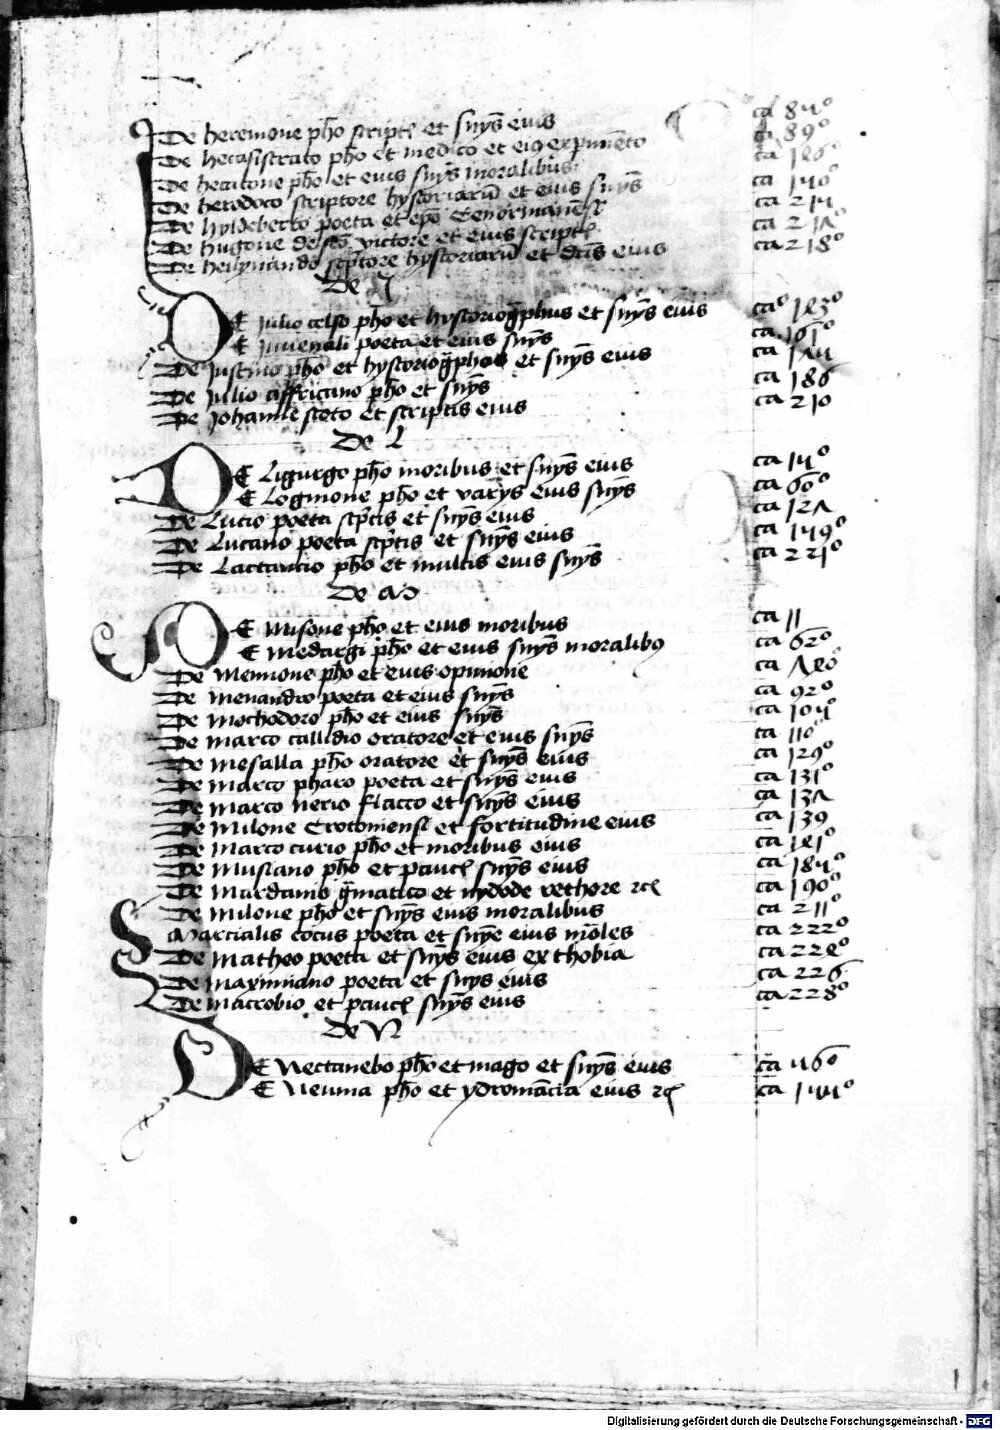 De heremone pħo script[is] et sn̄ijs eius ca 84º
De hecasistrato pħo et medico et ei9 experim̄to ca 89º
De hecatone pħo et eius sn̄ijs moralibus ca 126º
De herodoco scriptore hystoriarū et eius sn̄ijs ca 140º
De hyldeberto poeta et ep̄o Cenormanēsi ca 214
De hugone de sc̄o victore et eius script[is] ca 217º
De helynando sc̄ptore hystoriarū et dc̄is eius ca 218º
De I
DE Julio celso pħo et hystoriogp̄hus et sn̄ijs eius caº 123º
E Juuenali poeta et eius sn̄ijs ca 161º
De Justino pħo et hystoriogp̄ho et sn̄ijs eius ca 174
De Julio affricano pħo et sn̄ijs ca 186
De Johanne scoto et scriptis eius ca 210
De L
DE Ligurgo pħo moribus et sn̄ijs eius ca 14º
E Loginone pħo et varijs eius sn̄ijs ca 60º
De Lucio poeta sc̄ptis et sn̄ijs eius ca 127
De Lucano poeta sc̄ptis et sn̄ijs eius ca 149º
De Lactantio pħo et multis eius sn̄ijs ca 221º
De M
DE Misone pħo et eius moribus ca 11
E Medargi pħo et eius sn̄ijs moralib9 ca 62º
De Mennone pħo et eius opinione ca 720º
De menandro poeta et eius sn̄ijs ca 92º
De Mochodoro pħo et eius sn̄ijs ca 104º
De marco callidio oratore et eius sn̄ijs ca 110º
De Mesalla pħo oratore et sn̄ijs eius ca 129º
De Marco pharo poeta et sn̄ijs eius ca 131º
De Marco nerio flacco et sn̄ijs eius ca 137
De Milone Crotoniensi et fortitudine eius ca 139
De Marco curio pħo et moribus eius ca 121º
De Musiano pħo et pauc[is] sn̄ijs eius ca 184º
De Mardanis gmatico et nydode rethore ꝛc[etera] ca 190º
De Milone pħo et sn̄ijs eius moralibus ca 211º
Marcialis cocus poeta et sn̄ie eius mōles ca 222º
De Matheo poeta et sn̄ijs eius ex thobia ca 222º
De Maximiano poeta et sn̄ijs eius ca 226
De Macrobio et pauc[is] sn̄ijs eius ca 228º
De N
DE Nectanebo pħo et mago et sn̄ijs eius ca 46º
E Neuma pħo et ydromācia eius ꝛc[etera] ca 144º
1
Digitalisierung gefördert durch die Deutsche Forschungsgemeinschaft - DFG